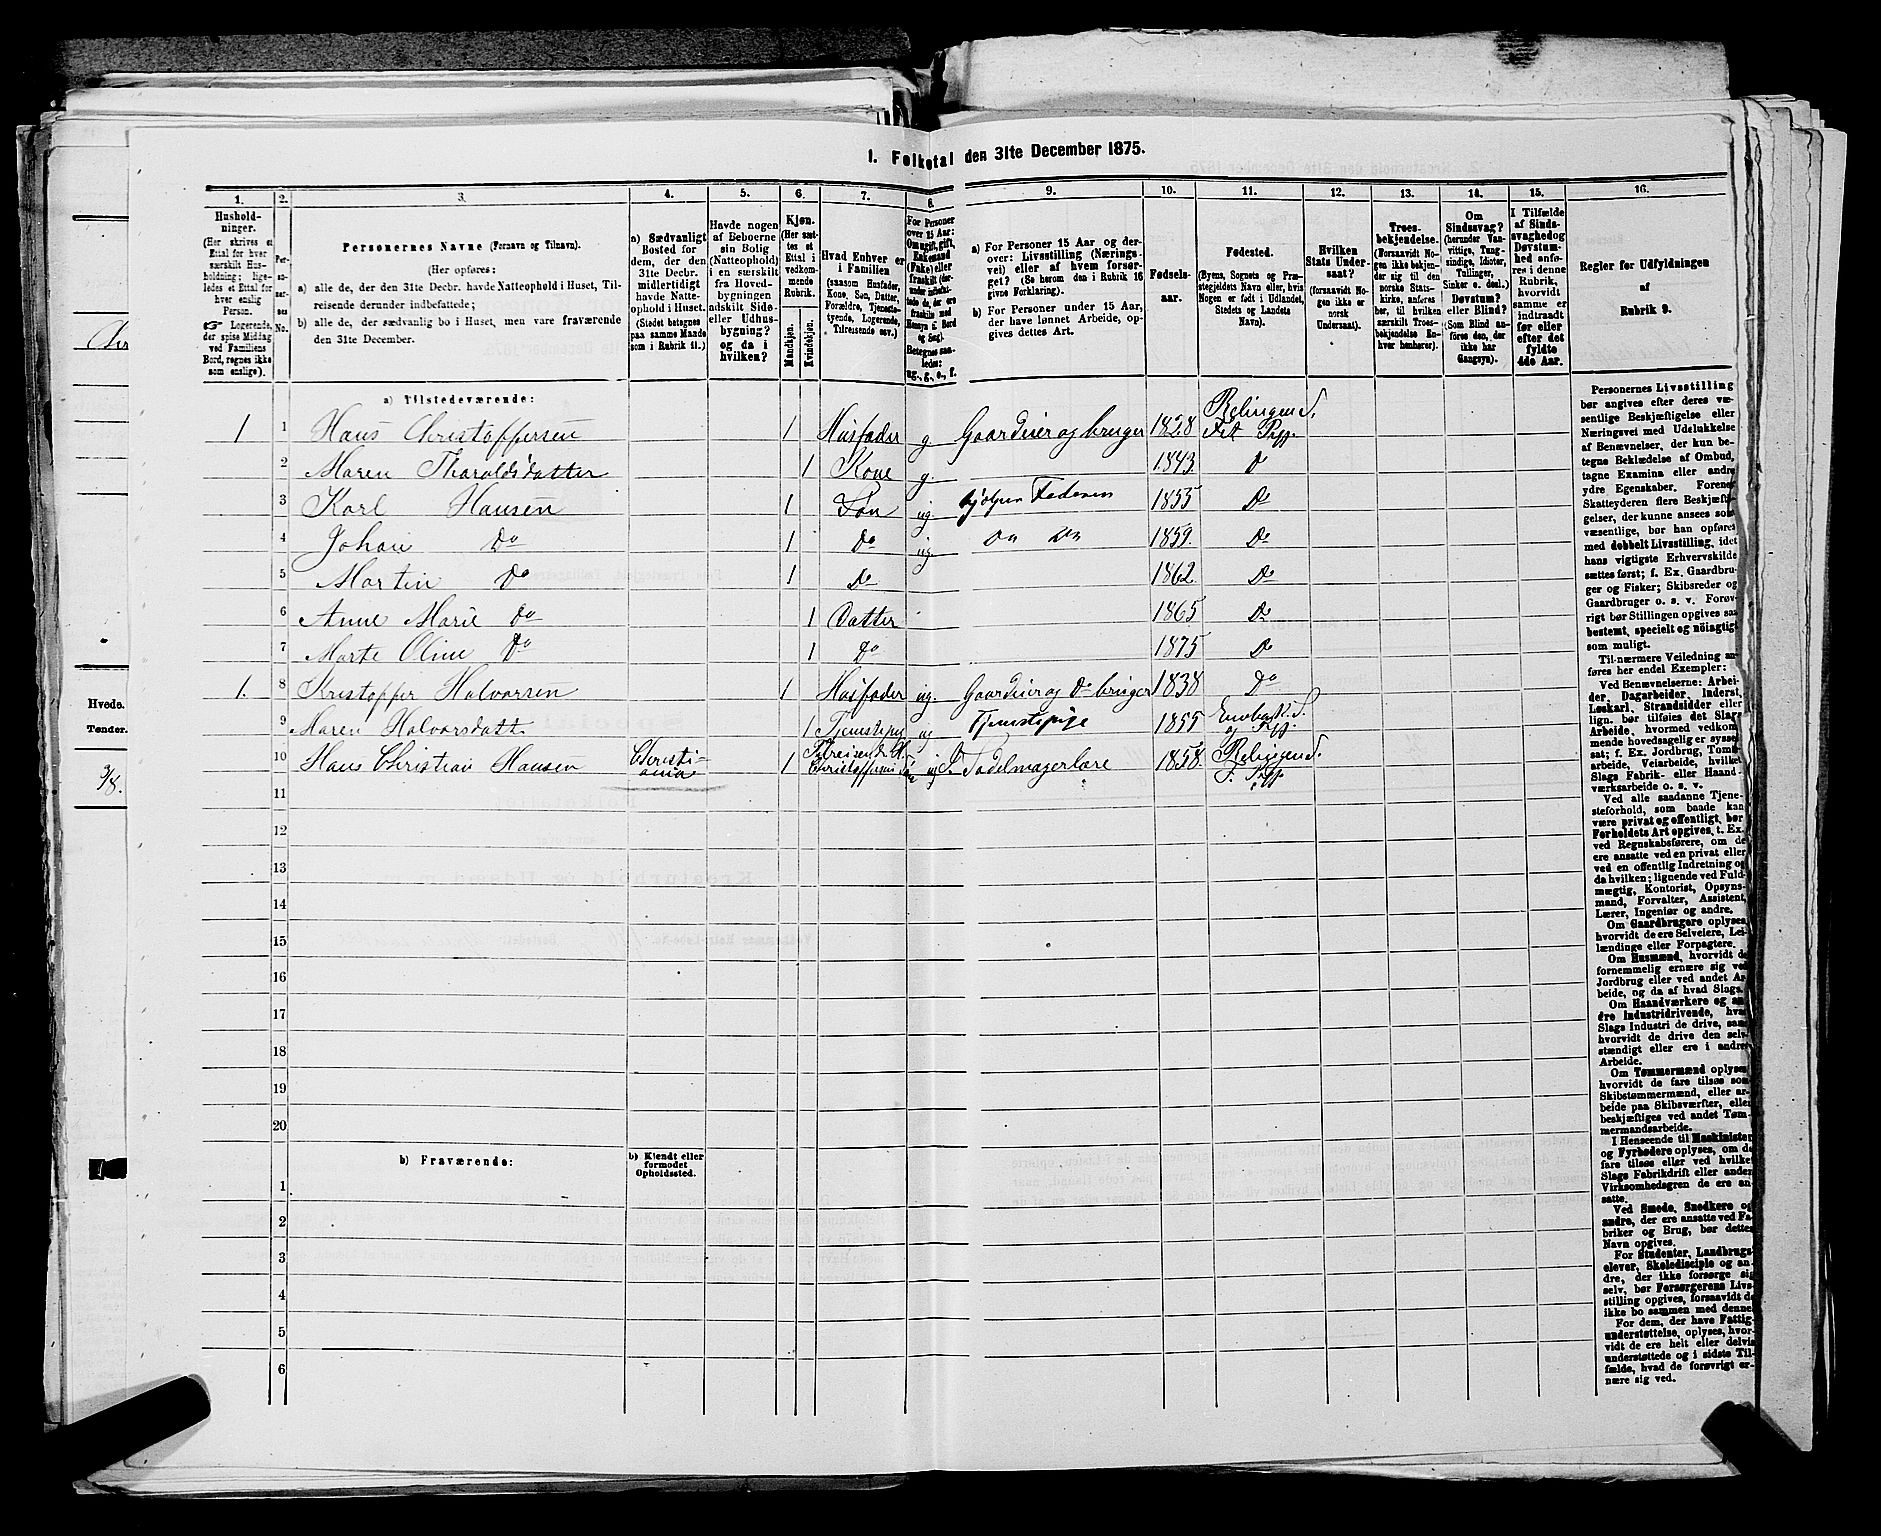 1. Folketal den 31te December 1875.
1. 2. 3. 4. 5. 6. 7. 8. 9. 10. 11. 12. 13. 14. 15. 16.
Hushold-
ninger.
(Her skrives et
Ettal for hver
særskilt Hus-
holdning; lige-
ledes et Ettal for
hver enslig
Person.
☞ Logerende,
der spise Middag
ved Familiens
Bord, regnes ikke
som enslige).
Personernes Navne (Fornavn og Tilnavn).
(Her opføres:
a) alle de, der den 31te Decbr. havde Natteophold i Huset, Til-
reisende derunder indbefattede;
b) alle de, der sædvanlig bo i Huset, men vare fraværende
den 31te December.
a) Sædvanligt
Bosted for
dem, der den
31te Decbr.
midlertidigt
havde Natte-
ophold i Huset.
(Stedet betegnes
paa samme Maade
som i Rubrik 11.)
Havde nogen
af Beboerne
sin Bolig
(Natteophold)
i en særskilt
fra Hoved-
bygningen
adskilt Side-
eller Udhus-
bygning?
og da i
hvilken?
Kjøn.
(Her sæt-
tes et
Ettal i
vedkom-
mende
Rubrik.
Mandkjøn.
Kvindekjøn.
Hvad Enhver er
i Familien
(saasom Husfader,
Kone, Søn, Datter,
Forældre, Tjeneste-
tyende, Logerende,
Tilreisende osv.)
For Personer
over 15 Aar:
Om ugift, gift,
Enkemand
(Enke) eller
fraskilt
Betegnes saa-
ledes:
ug., g., e., f.
a) For Personer 15 Aar og der-
over: Livsstilling (Nærings-
vei) eller af hvem forsør-
get? (Se herom den i Rubrik 16
givne Forklaring).
b) For Personer under 15 Aar,
der have lønnet Arbeide, op-
gives dettes Art.
Fødsels-
aar.
Fødested.
(Byens, Sognets og Præ-
stegjeldets Navn eller, hvis
Nogen er født i Udlandet,
Stedets og Landets
Navn).
Hvilken
Stats Under-
saat?
(forsaavidt No-
gen ikke er
norsk
Undersaat).
Troes-
bekjendelse.
(Forsaavidt No-
gen ikke bekjen-
der sig til den
norske Stats-
kirke, anføres
her, til hvilken
særskilt Troes-
bekjendelse En-
hver henhører).
Om
Sindssvag?
(herunder Van-
vittige, Tung-
sindige, Idioter,
Tullinger,
Sinker o. desl.)
Døvstum?
eller Blind?
(Som Blind an-
føres den, der
ikke har
Gangsyn).
I Tilfælde
af Sinds-
svaghed og
Døvstum-
hed anfø-
res i denne
Rubrik,
hvorvidt
samme er
indtraadt
før eller
efter det
fyldte
4de Aar.
Regler for Udfyldningen
af
Rubrik 9.
a) Tilstedeværende:
1 1 Hans Christoffersen 1 Husfader g. Gaardeier og bruger 1828 Relingen S. Fet Pgj.
2 Maren Tharaldsdatter 1 Kone g. 1843. D
3 Karl Hansen 1 Søn ug. hjelper Faderen 1855 Do
4 Johan Do 1 Do ug. Do Do 1859. Do
5 Martin Do 1 Do 1862 Do
6 Anne Marie Do 1 Datter 1865 Do
7 Marte Oline Do 1 Do 1875 Do
1. 8 Kristoffer Halvorsen 1 Husfader ug. Gaardeier og Do bruger 1838 Do
9 Maren Halvorsdatt 1 Tjenstepig ug Tjenstepige 1855
10 Hans Christian Hansen Christi-
ania 1 Tilreisende H.
Christoffersens Søn ug. Sadelmagerlære 1858 Relingen S.
F. Pgj.
11
12
13
14
15
16
17
18
19
20
b) Fraværende:
b) Kjendt eller
formodet
Opholdssted.
1
2
3
4
5
6
Personernes Livsstilling
bør angives efter deres væ-
sentlige Beskjæftigelse eller
Næringsvei med Udelukkelse
af Benævnelser, der kun be-
tegne Beklædelse af Ombud,
tagne Examina eller andre
ydre Egenskaber. Forener
Skatteyderen flere Beskjæfti-
gelser, der kunne ansees som
væsentlige, bør han opføres
med dobbelt Livsstilling, idet
hans vigtigste Erhvervskilde
sættes først; f. Ex. Gaardbru-
ger og Fisker; Skibsreder og
Gaardbruger o. s. v. Forøv-
rigt bør Stillingen opgives saa
bestemt, specielt og nøiagtigt
som muligt.
Til nærmere Veiledning an-
føres her endel Exempler:
Ved Benævnelserne: Arbei-
der, Dagarbeider, Inderst,
Løskarl, Strandsidder eller
lign. bør tilføies det Slags
Arbeide, hvormed vedkom-
mende hovedsagelig er syssel-
sat; f. Ex. Jordbrug, Tomte-
arbeide, Veiarbeide, hvilket
Slags Fabrik- eller Haand-
værksarbeide o. s. v.
Ved alle saadanne Tjene-
steforhold, som baade kan
være privat og offentligt, bør
Forholdets Art opgives, t. Ex.
ved Regnskabsførere, om de
ere ansatte ved en privat eller
ved en offentlig Indretning og
da hvilken; lignende ved Fuld-
mægtig, Kontorist, Opsyns-
mand, Forvalter, Assistent,
Lærer, Ingeniør og andre.
Om Gaardbrugere oplyses,
hvorvidt de ere Selveiere, Lei-
lændinge eller Forpagtere.
Om Husmænd, hvorvidt de
fornemmelig ernære sig ved
Jordbrug eller ved andet Ar-
beide, og da af hvad Slags.
Om Haandværkere og an-
dre Industridrivende, hvad
Slags Industri de drive, samt
hvorvidt de drive den selv-
stændigt eller ere i andres
Arbeide.
Om Tømmermænd oplyses,
hvorvidt de fare tilsøs som
Skibstømmermænd, eller ar-
beide paa Skibsværfter, eller
beskjæftiges ved andet Tøm-
mermandsarbeide.
I Henseende til Maskinister
og Fyrbødere oplyses, om de
fare tilsøs eller ved hvilket
Slags Fabrikdrift eller anden
Virksomhedsgren de ere an-
satte.
Ved Smede, Snedkere og
andre, der ere ansatte ved Fa-
briker og Brug, bør dettes
Navn opgives.
For Studenter, Landbrugs-
elever, Skoledisciple og an-
dre, der ikke forsørge sig
selv, bør Forsørgerens Livs-
stilling opgives, forsaavidt de
ikke bo sammen med denne.
For dem, der have Fattig-
understøttelse, oplyses, hvor-
vidt de ere helt eller delvis
understøttede og i sidste Til-
fælde, hvad de forøvrigt er-
nære sig ved.
Hvede.
Tønder.
3/8.